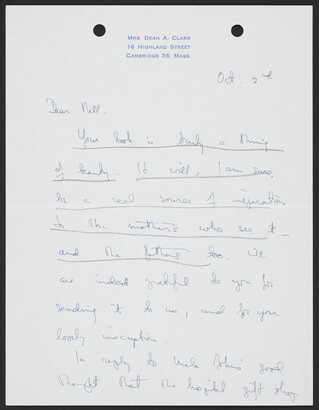 MRS. DEAN A. CLARK
16 HIGHLAND STREET
CAMBRIDGE 38, MASS.
Oct. 2nd
Dear Nell.
Your book is truly a thing
of beauty. It will, I am sure,
be a real source of inspiration
to the mothers who see it –
and the fathers too. We
are indeed grateful to you for
sending it to us, and for your
lovely inscription.
In reply to Uncle John's good
thought that the hospital gift shop